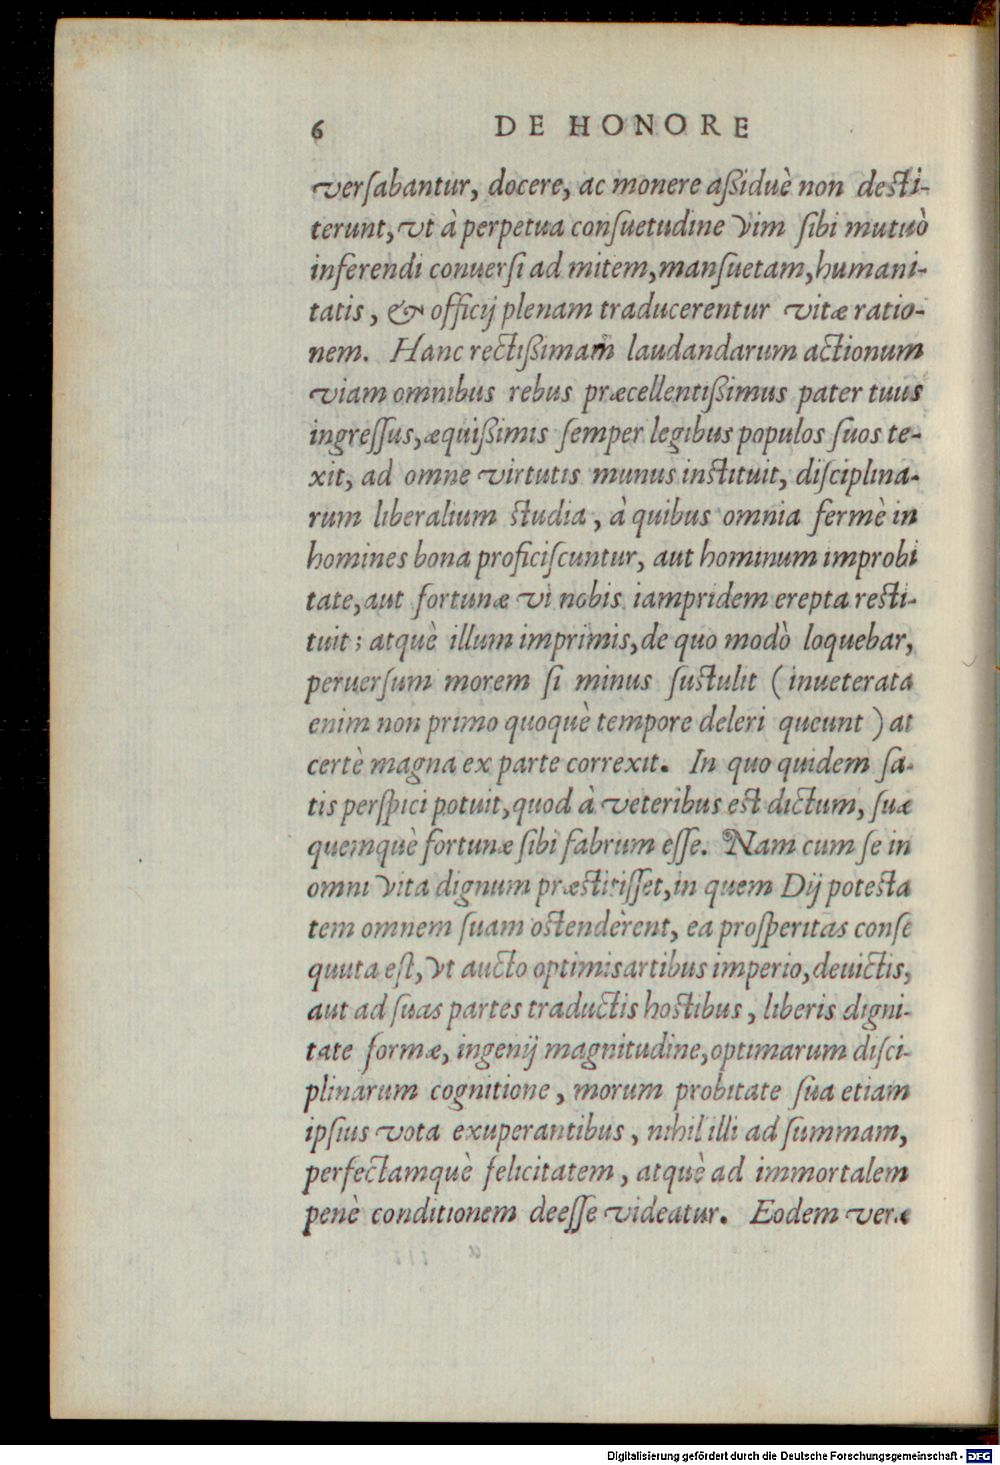 6 DE HONORE
verſabantur, docere, ac monere aßiduè non deſti-
terunt, vt à perpetua conſuetudine vim ſibi mutuò
inferendi conuerſi ad mitem, manſuetam, humani-
tatis, & officij plenam traducerentur vitæ ratio-
nem. Hanc rectißimam laudandarum actionum
viam omnibus rebus præcellentißimus pater tuus
ingreſſus, æquißimis ſemper legibus populos ſuos te-
xit, ad omne virtutis munus inſtituit, diſciplina-
rum liberalium ſtudia, à quibus omnia fermè in
homines bona proficiſcuntur, aut hominum improbi
tate, aut fortunæ vi nobis iampridem erepta reſti-
tuit; atquè illum imprimis, de quo modò loquebar,
peruerſum morem ſi minus ſuſtulit (inueterata
enim non primo quoquè tempore deleri queunt) at
certè magna ex parte correxit. In quo quidem ſa-
tis perſpici potuit, quod à veteribus eſt dictum, ſuæ
quemquè fortunæ ſibi fabrum eſſe. Nam cum ſe in
omni vita dignum præſtitiſſet, in quem Dij poteſta
tem omnem ſuam oſtendèrent, ea proſperitas conſe
quuta eſt, vt aucto optimis artibus imperio, deuictis,
aut ad ſuas partes traductis hoſtibus, liberis digni-
tate formæ, ingenij magnitudine, optimarum diſci-
plinarum cognitione, morum probitate ſua etiam
ipſius vota exuperantibus, nihil illi ad ſummam,
perfectamquè felicitatem, atquè ad immortalem
penè conditionem deeſſe videatur. Eodem veræ
Digitalisierung gefördert durch die Deutsche Forschungsgemeinschaft - DFG